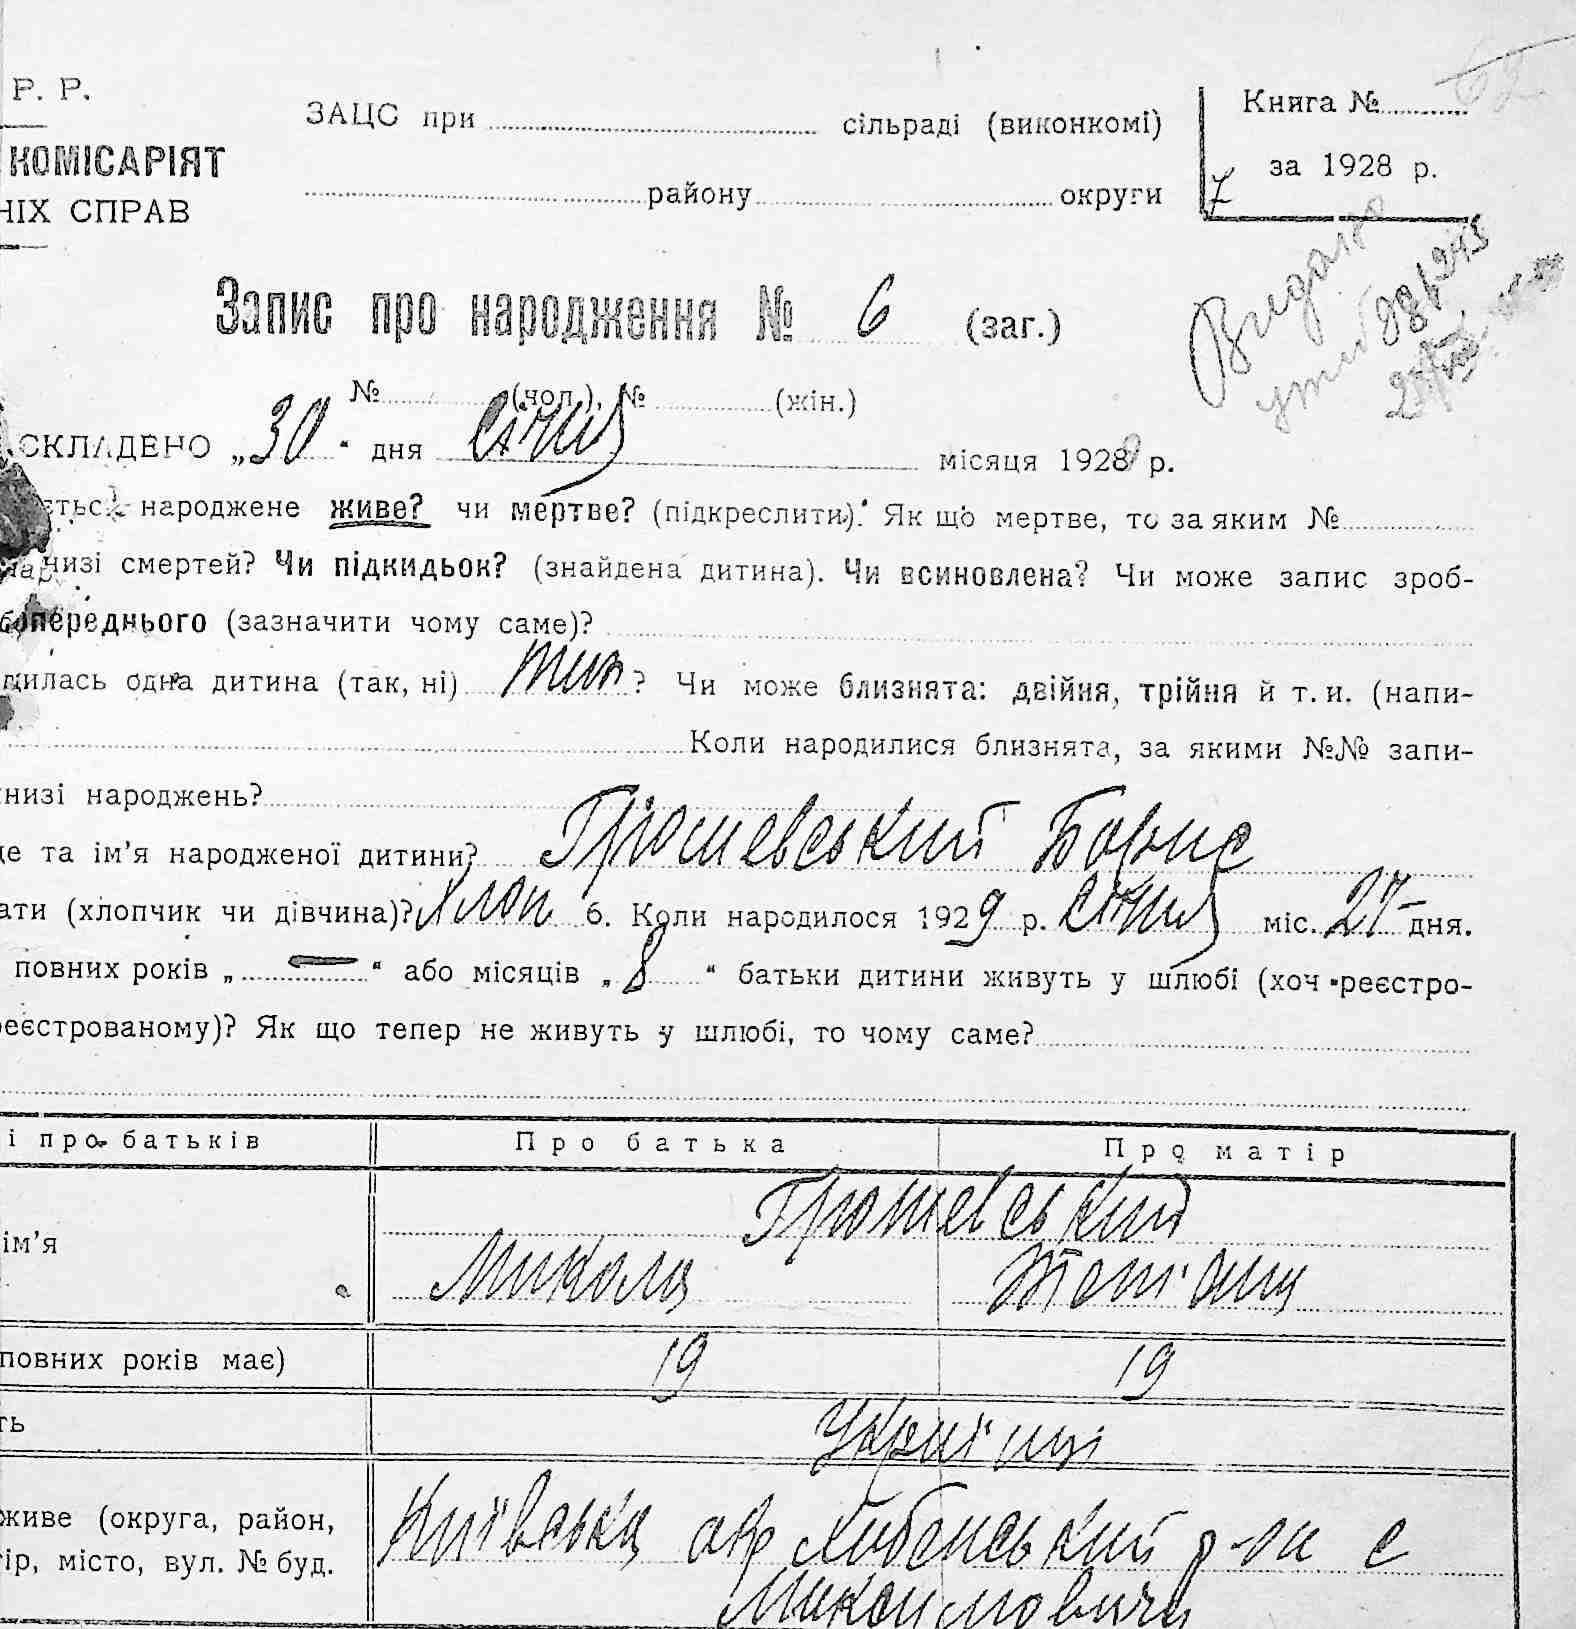 Р. Р.
ЗАЦС при сільраді (виконкомі)
Книга №
62
КОМІСАРІЯТ
за 1928 р.
НІХ СПРАВ
району округи
7
Видано
Запис про народження № 6 (заг.)
№ (чол.), № (жін.)
СКЛАДЕНО „30“ дня січня місяця 1929 р.
ється народжене живе? чи мертве? (підкреслити). Як що мертве, то за яким №
низі смертей? Чи підкидьок? (знайдена дитина). Чи всиновлена? Чи може запис зроб-
попереднього (зазначити чому саме)?
дилась одна дитина (так, ні) так? Чи може близнята: двійня, трійня й т. и. (напи-
Коли народилися близнята, за якими №№ запи-
низі народжень?
ще та ім’я народженої дитини? Грошевський Борис
ати (хлопчик чи дівчина)? Хлоп 6. Коли народилося 1929 р. січня міс. 27 дня.
повних років „ — “ або місяців „ 8 “ батьки дитини живуть у шлюбі (хоч реєстро-
реєстрованому)? Як що тепер не живуть у шлюбі, то чому саме?
і про батьків Про батька Про матір
Грошевський
ім’я
Микола Тетяна
повних років має) 19 19
ть Українці
живе (округа, район, Київська окр р-он с
тір, місто, вул. № буд. Максимовичи